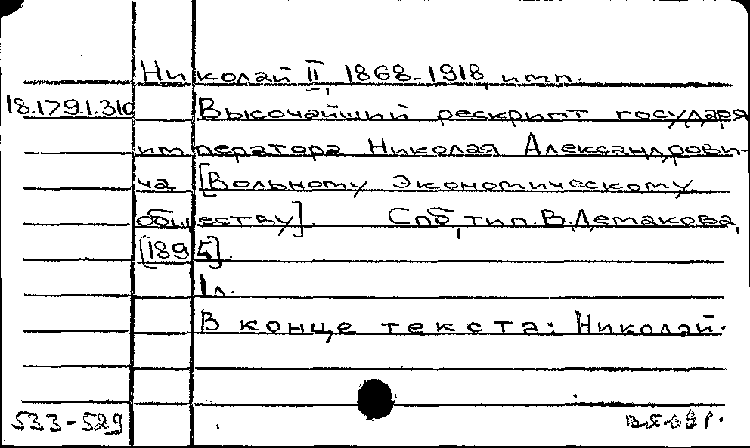 Николай II, 1868-1918, имп.
18.179.1.310 Высочайший рескрипт государя
императора Николая Александрови-
ча [Вольному Экономическому
обществу]. Спб, тип. В. Демакова,
[1895].
1 л.
В конце текста: Николай.
533-529